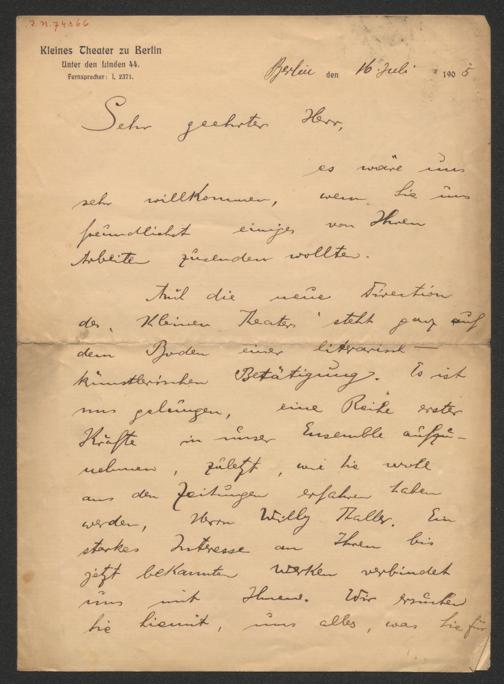 J.N. 74366
Kleines Theater zu Berlin
Unter den Linden 44.
Fernsprecher: I, 2371.
Berlin den 16 Juli 1905
Sehr geehrter Herr,
es wäre uns
sehr willkommen, wenn Sie uns
freundlichst einiges von Ihren
Arbeiten zusenden wollten.
Auch die neue Direction
des „Kleinen Theaters" steht ganz auf
dem Boden einer literarisch-
künstlerischen Betätigung. Es ist
uns gelungen, eine Reihe erster
Kräfte in unser Ensemble aufzu-
nehmen, zuletzt, wie Sie wohl
aus den Zeitungen erfahren haben
werden, Herrn Willy Thaller. Ein
starkes Interesse an Ihren bis
jetzt bekannten Werken verbindet
uns mit Ihnen. Wir ersuchen
Sie hiemit, uns alles, was Sie für